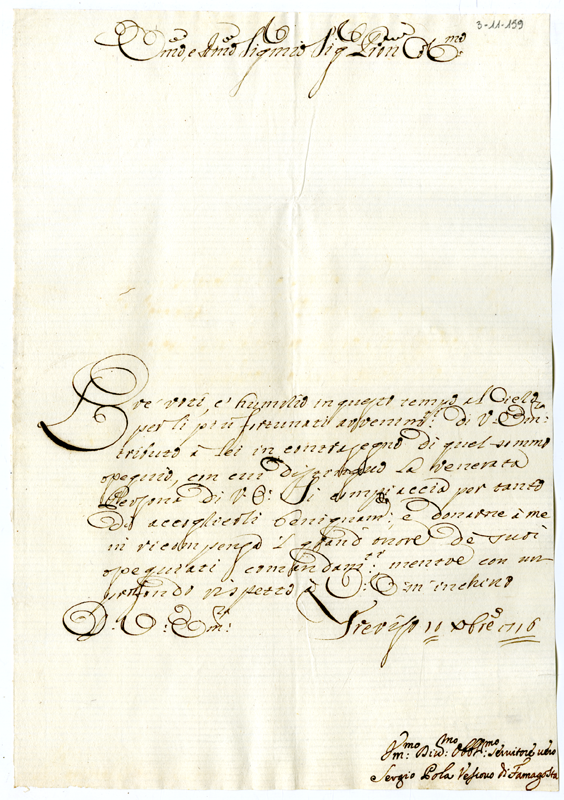 3-11-159
Emo, e Rmo Sigre Sig Pron Colmo
Li voti, ch'humilio in questo tempo al Cielo
per li più fortunati avvenimti: di V: Em:
tributo à lei in contrasegno di quel sommo
ossequio, con cui la venerata
Persona di V: E: Si compiaccia per tanto
di accoglierli benignamte: e donarne à me
in ricompensa l grand onore de suoi
ossequiati comandamti: mentre con un
profondo rispetto à V: Em m'inchino
D. V: Em:
Treviso 11 Xbre 1716
Um: Divo: Obblmo: servitore vero
Sergio Pola Vescovo di Famagosta